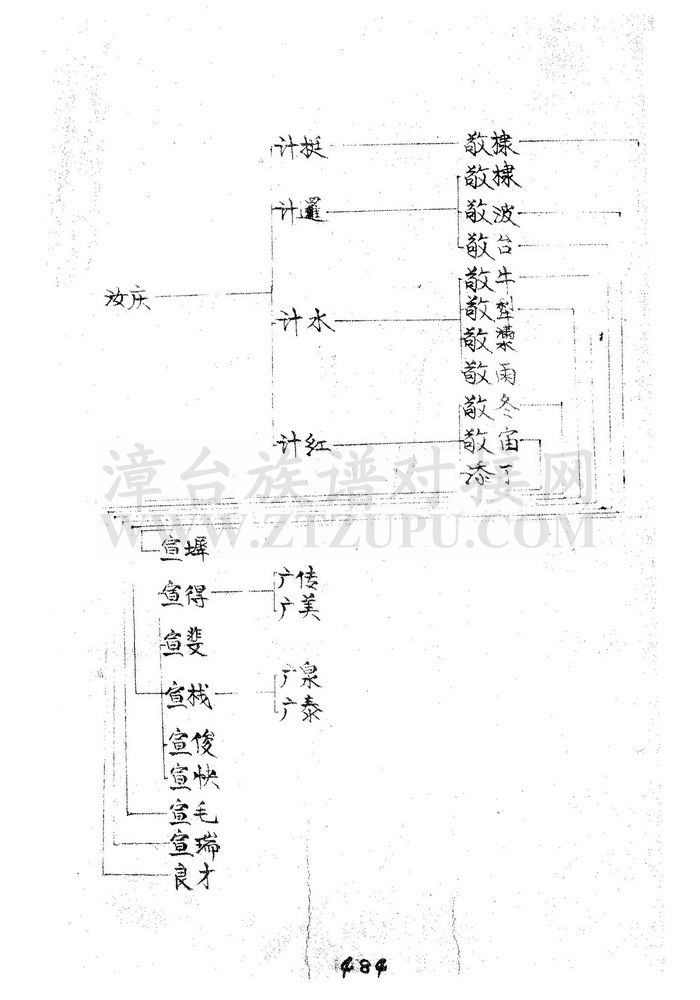 计挺 敬棣
敬棣
计暹 敬波
敬台
汝庆
敬牛
敬犁
计水
敬漯
敬雨
敬冬
计红 敬宙
添丁
漳台族谱对接网
WWW.ZTZUPU.COM
宣墀
宣得 广传
广美
宣斐
宣栈 广泉
广泰
宣俊
宣快
宣毛
宣瑞
良才
484